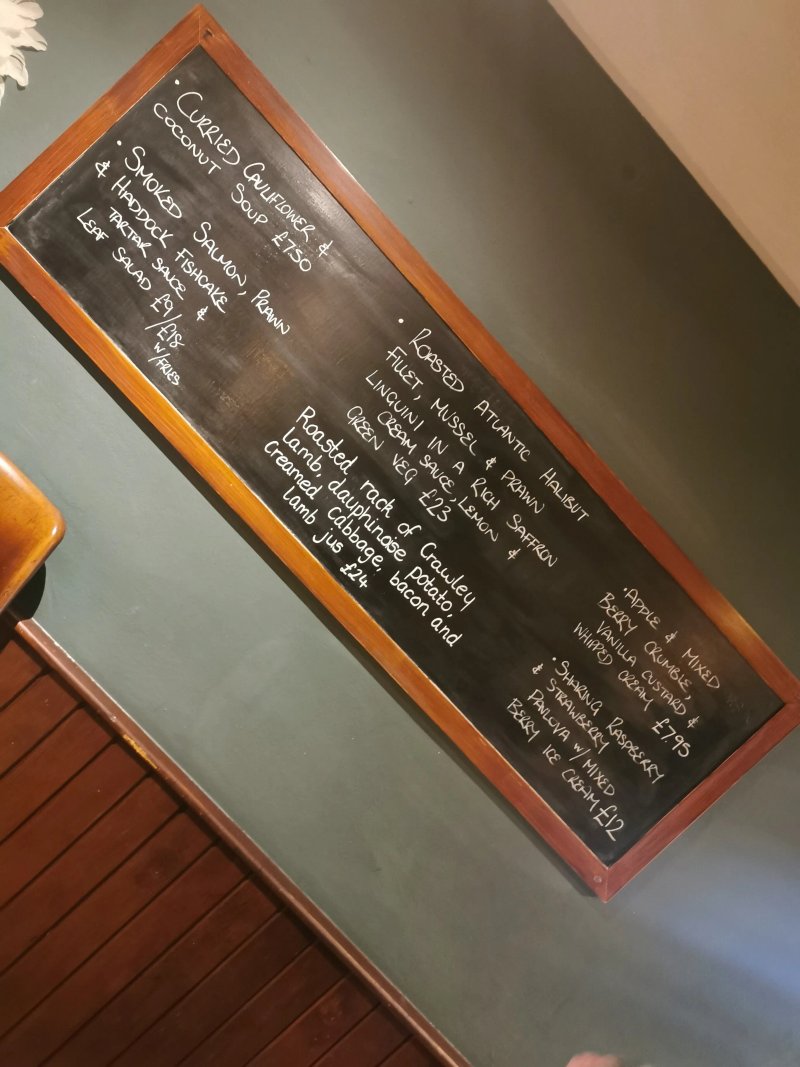 • CURRIED CAULIFLOWER &
COCONUT SOUP £7.50
• SMOKED SALMON, PRAWN
& HADDOCK FISHCAKE
TARTAR SAUCE &
LEAF SALAD £9/£18
W/FRIES
• ROASTED ATLANTIC HALIBUT
FILLET, MUSSEL & PRAWN
LINGUINI IN A RICH SAFFRON
CREAM SAUCE, LEMON &
GREEN VEG £23
Roasted rack of Crawley
lamb, dauphinoise potato,
creamed cabbage, bacon and
lamb jus £24
• APPLE & MIXED
BERRY CRUMBLE,
VANILLA CUSTARD &
WHIPPED CREAM £7.95
• SHARING RASPBERRY
& STRAWBERRY
PAVLOVA W/ MIXED
BERRY ICE CREAM £12